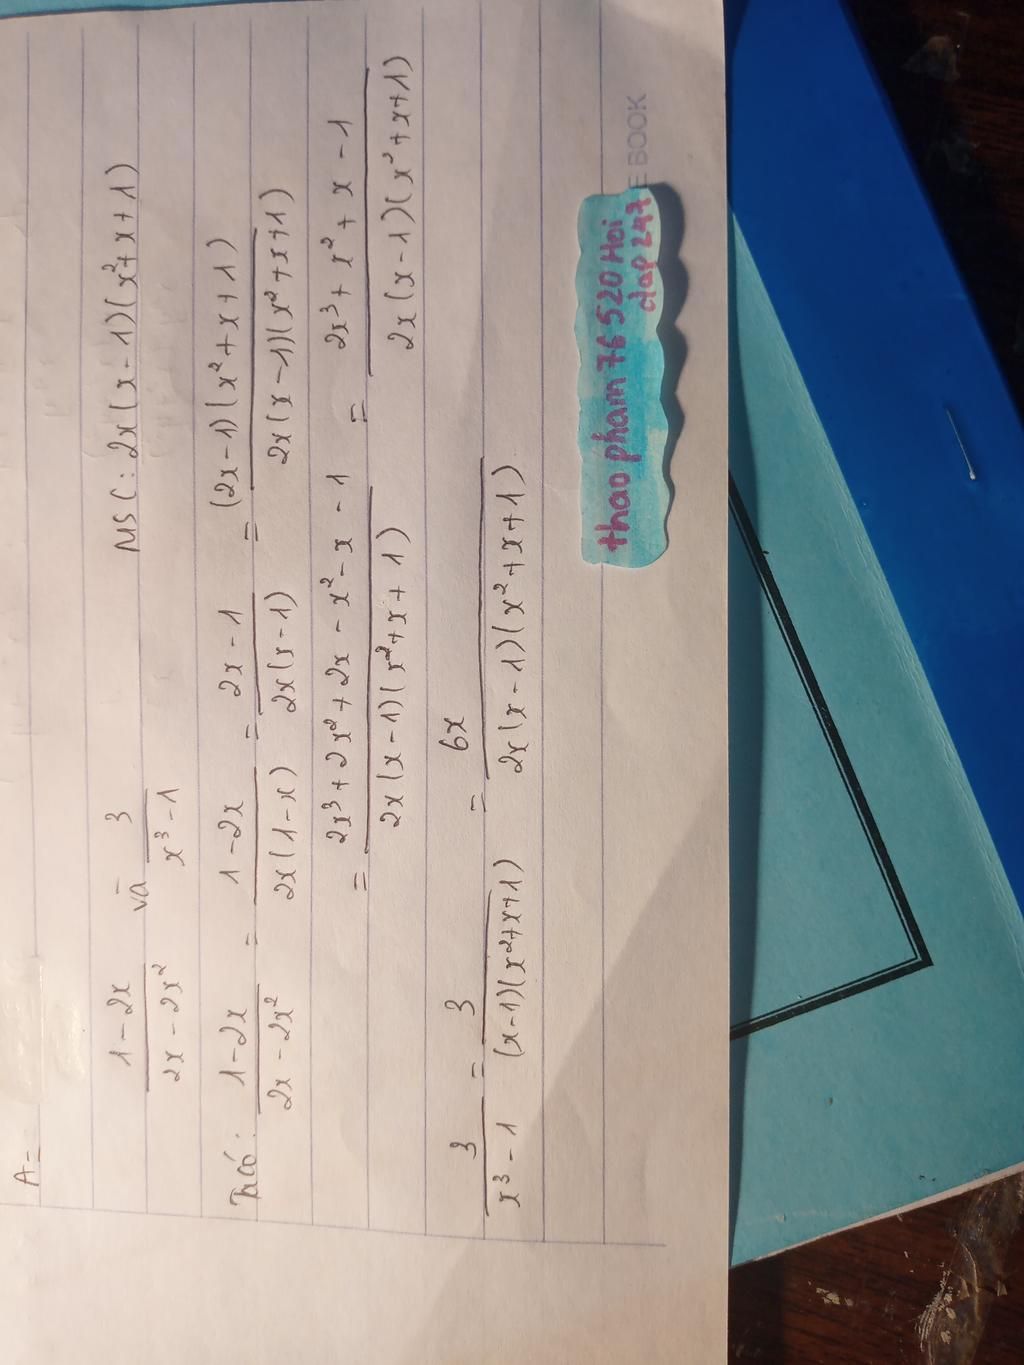 A=
1-2x / 2x-2x² và 3 / x³-1 MSC: 2x(x-1)(x²+x+1)
Ta có: 1-2x / 2x-2x² = 1-2x / 2x(1-x) = 2x-1 / 2x(x-1) = (2x-1)(x²+x+1) / 2x(x-1)(x²+x+1)
= 2x³+2x²+2x-x²-x-1 / 2x(x-1)(x²+x+1) = 2x³+x²+x-1 / 2x(x-1)(x²+x+1)
3 / x³-1 = 3 / (x-1)(x²+x+1) = 6x / 2x(x-1)(x²+x+1)
thao pham 76 520 Hoi
dap 247
EBOOK